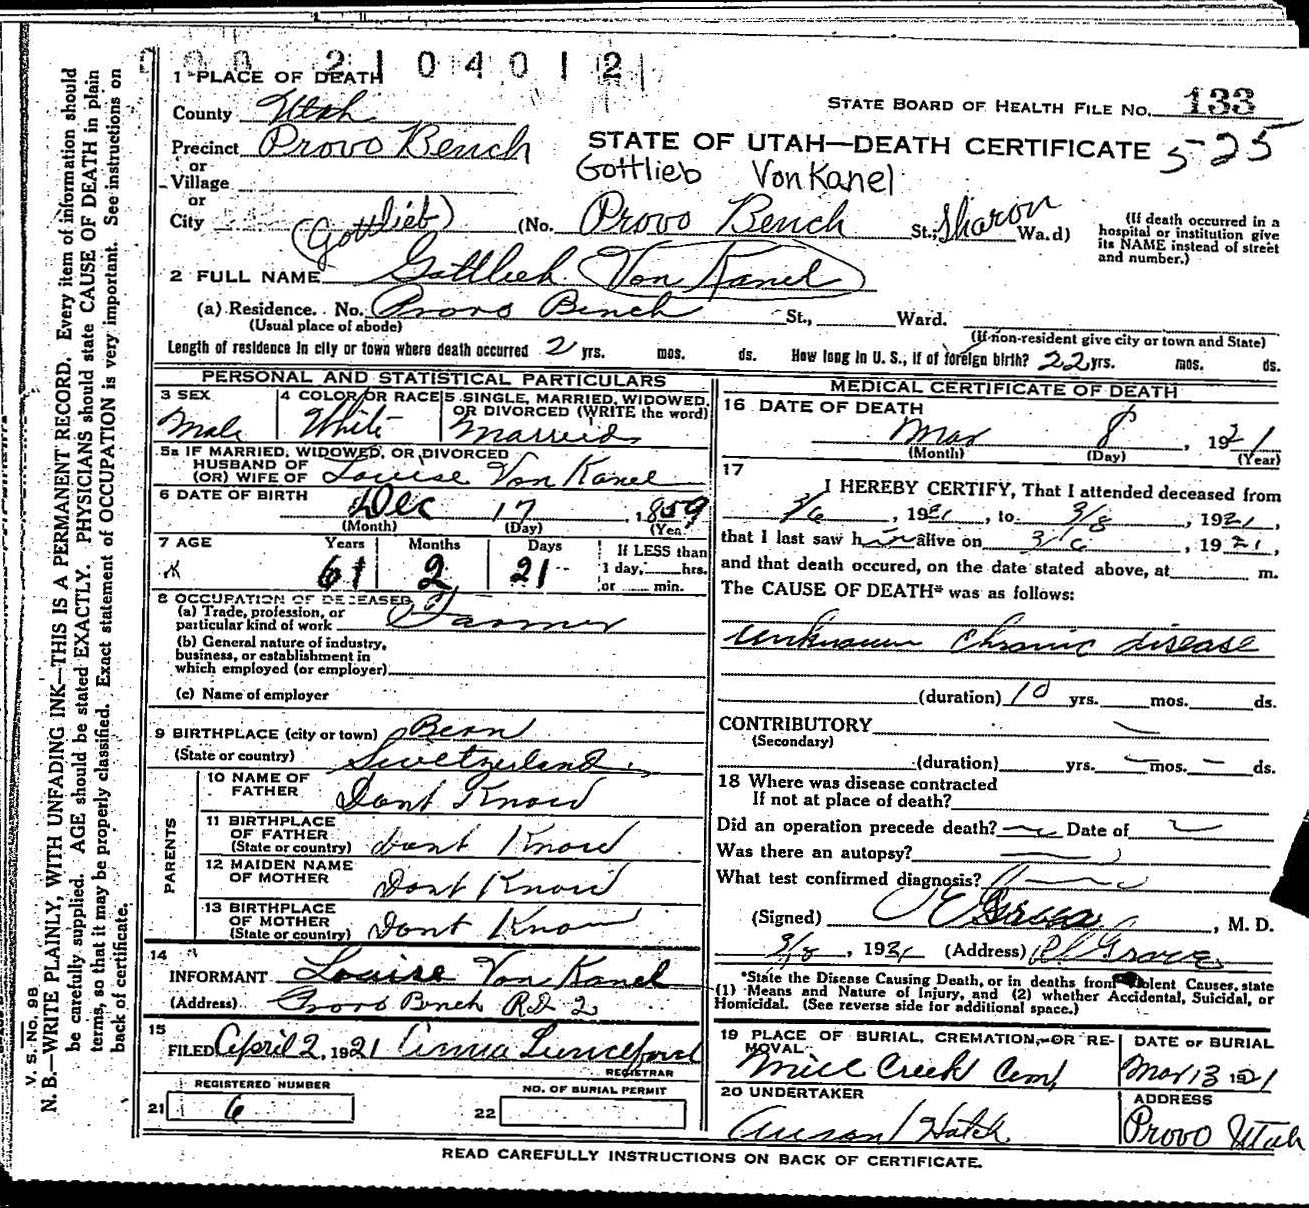 2104012
1 PLACE OF DEATH
STATE BOARD OF HEALTH FILE NO. 133
County Utah
Precinct Provo Bench
STATE OF UTAH—DEATH CERTIFICATE 5-25
or
Village
Gottlieb VonKanel
or
City (Gottlieb) (No. Provo Bench St.; Sharon Wa.d)
(If death occurred in a hospital or institution give its NAME instead of street and number.)
2 FULL NAME Gottlieb Von Kanel
(a) Residence. No. Provo Bench St., Ward.
(Usual place of abode) (If non-resident give city or town and State)
Length of residence in city or town where death occurred 2 yrs. mos. ds. How long in U. S., if of foreign birth? 22 yrs. mos. ds.
PERSONAL AND STATISTICAL PARTICULARS
3 SEX Male
4 COLOR OR RACE White
5 SINGLE, MARRIED, WIDOWED, OR DIVORCED (WRITE the word) Married
5a IF MARRIED, WIDOWED, OR DIVORCED
HUSBAND OF
(OR) WIFE OF Louise Von Kanel
6 DATE OF BIRTH Dec 17, 1859
(Month) (Day) (Year)
7 AGE Years Months Days
61 2 21
If LESS than
1 day, hrs.
or min.
8 OCCUPATION OF DECEASED
(a) Trade, profession, or
particular kind of work Farmer
(b) General nature of industry,
business, or establishment in
which employed (or employer)
(c) Name of employer
9 BIRTHPLACE (city or town) Bern
(State or country) Switzerland
PARENTS
10 NAME OF FATHER Dont Know
11 BIRTHPLACE OF FATHER (State or country) Dont Know
12 MAIDEN NAME OF MOTHER Dont Know
13 BIRTHPLACE OF MOTHER (State or country) Dont Know
14
INFORMANT Louise Von Kanel
(Address) Provo Bench R.D. 2
15
FILED April 2, 1921 Annia Lunceford
REGISTRAR
REGISTERED NUMBER
21 6
NO. OF BURIAL PERMIT
22
MEDICAL CERTIFICATE OF DEATH
16 DATE OF DEATH
Mar 8, 1921
(Month) (Day) (Year)
17
I HEREBY CERTIFY, That I attended deceased from
3/6, 1921, to 3/8, 1921,
that I last saw him alive on 3/6, 1921,
and that death occured, on the date stated above, at m.
The CAUSE OF DEATH* was as follows:
unknown chronic disease
(duration) 10 yrs. mos. ds.
CONTRIBUTORY
(Secondary)
(duration) yrs. mos. ds.
18 Where was disease contracted
If not at place of death?
Did an operation precede death? Date of
Was there an autopsy?
What test confirmed diagnosis?
(Signed) M. D.
3/8, 1921 (Address) Pl Grove
*State the Disease Causing Death, or in deaths from Violent Causes, state
(1) Means and Nature of Injury, and (2) whether Accidental, Suicidal, or
Homicidal. (See reverse side for additional space.)
19 PLACE OF BURIAL, CREMATION, OR REMOVAL
Mill Creek Cem
DATE OF BURIAL
Mar 13 1921
20 UNDERTAKER
Hatch
ADDRESS
Provo Utah
READ CAREFULLY INSTRUCTIONS ON BACK OF CERTIFICATE.
V. S. No. 98
N. B.—WRITE PLAINLY, WITH UNFADING INK—THIS IS A PERMANENT RECORD. Every item of information should
be carefully supplied. AGE should be stated EXACTLY. PHYSICIANS should state CAUSE OF DEATH in plain
terms, so that it may be properly classified. Exact statement of OCCUPATION is very important. See instructions on
back of certificate.